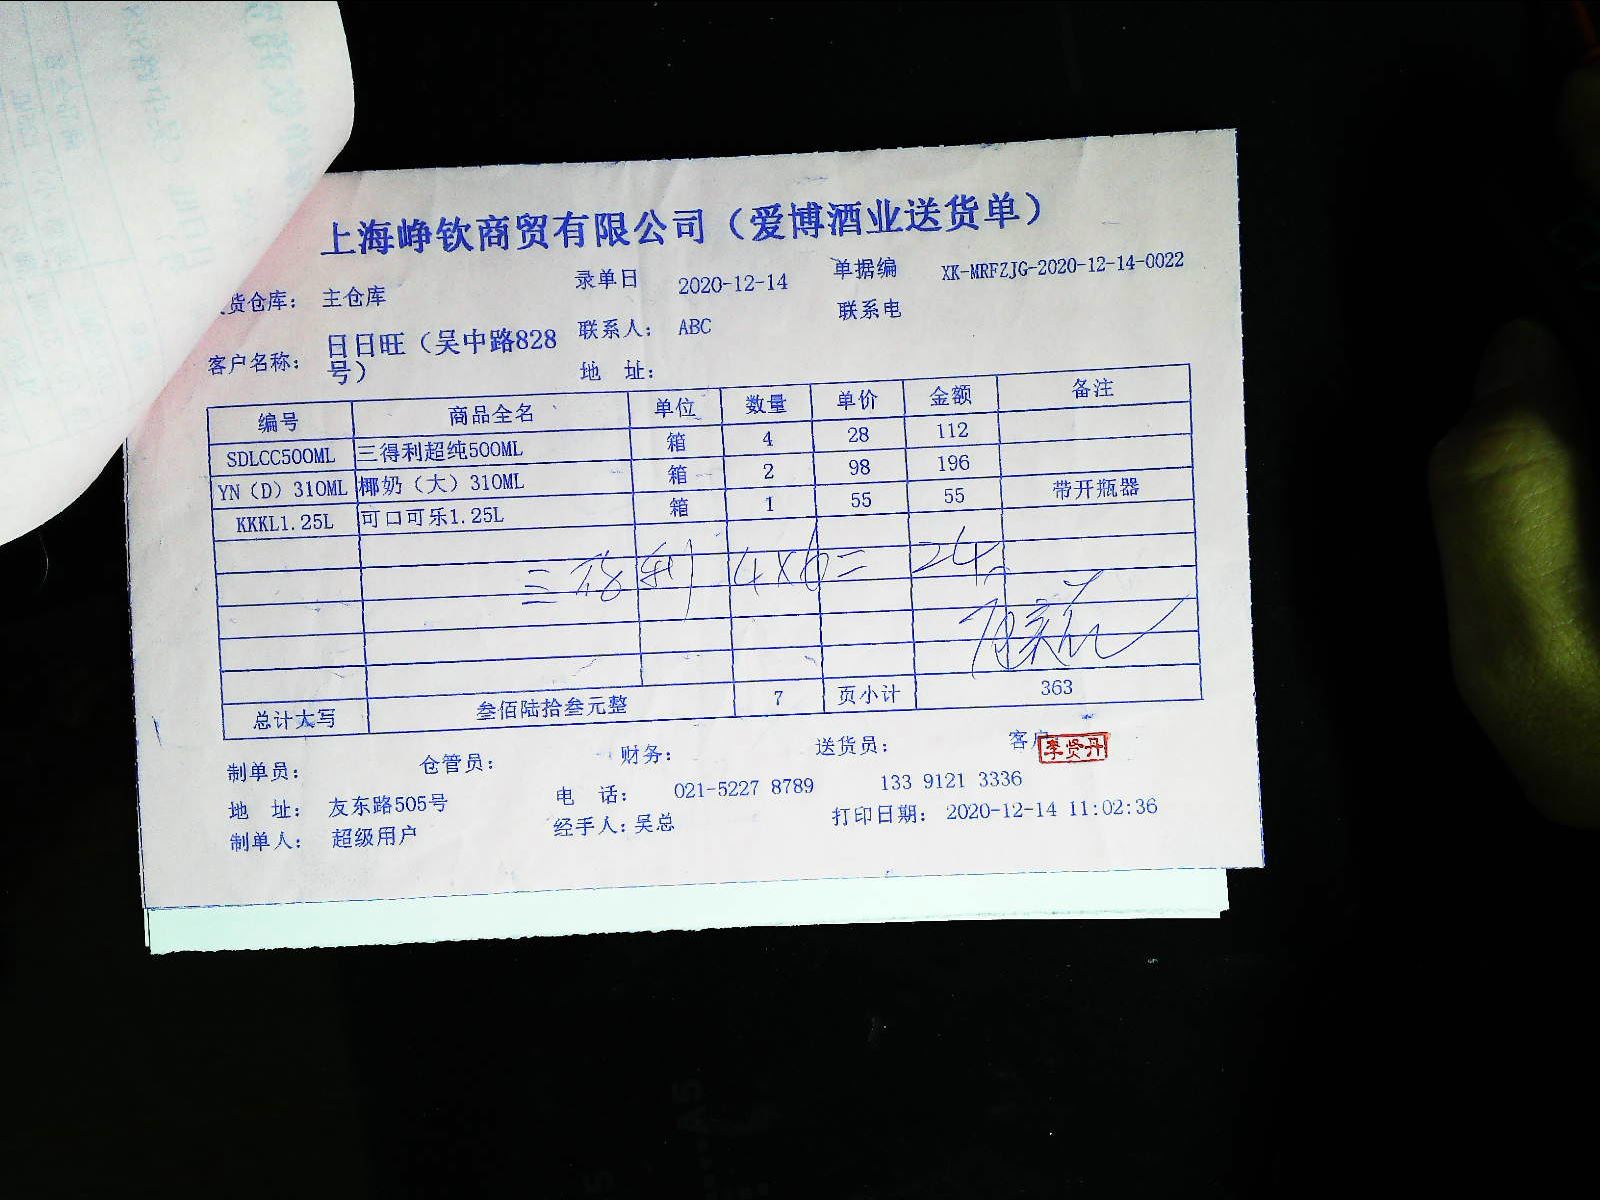 上海峥钦商贸有限公司（爱博酒业送货单）
货仓库： 主仓库 录单日 2020-12-14 单据编 XK-MRFZJG-2020-12-14-0022
客户名称： 日日旺（吴中路828号） 联系人： ABC 联系电
地 址：
编号 商品全名 单位 数量 单价 金额 备注
SDLCC500ML 三得利超纯500ML 箱 4 28 112
YN（D）310ML 椰奶（大）310ML 箱 2 98 196
KKKL1.25L 可口可乐1.25L 箱 1 55 55 带开瓶器
三得利 4×6= 24
总计大写 叁佰陆拾叁元整 7 页小计 363
制单员： 仓管员： 财务： 送货员： 客户
李贤丹
地 址： 友东路505号 电 话： 021-5227 8789 133 9121 3336
制单人： 超级用户 经手人：吴总 打印日期： 2020-12-14 11:02:36